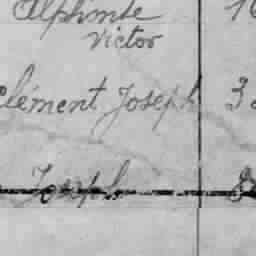 Alphonse
Victor
Clément Joseph 3
Joseph